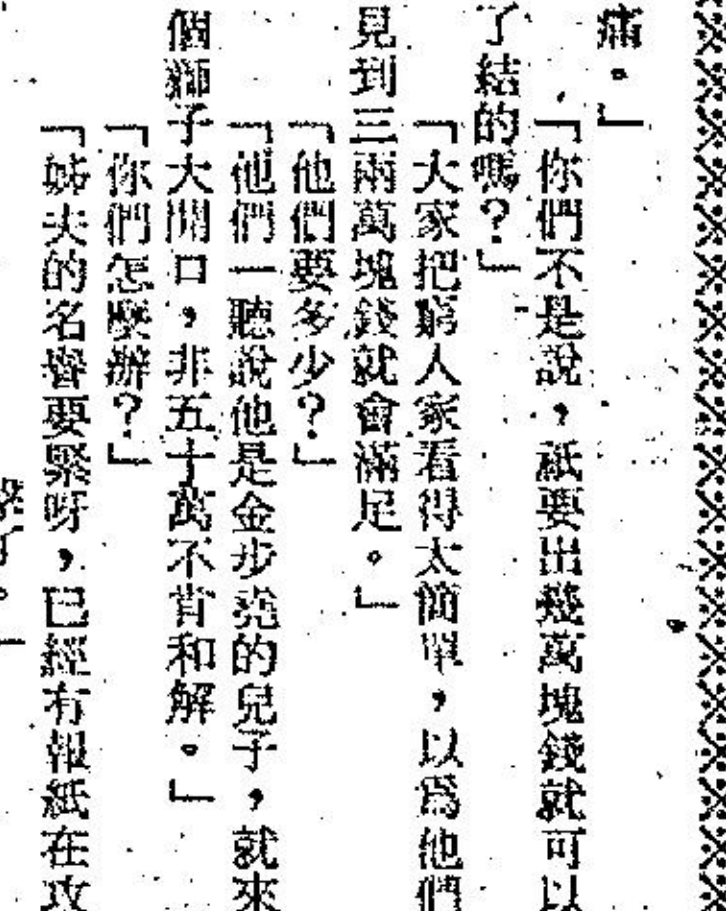 痛。」
「你們不是說，祇要出幾萬塊錢就可以
了結的嗎？」
「大家把窮人家看得太簡單，以爲他們
見到三兩萬塊錢就會滿足。」
「他們要多少？」
「他們一聽說他是金步堯的兒子，就來
個獅子大開口，非五十萬不肯和解。」
「你們怎麼辦？」
「姊夫的名譽要緊呀，已經有報紙在攻
了。」